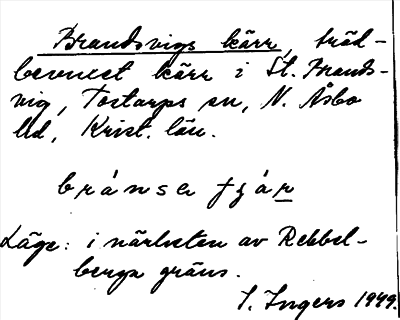 Brandsvigs kärr, träd-
bevuxet kärr i St. Brands-
vig, Tostarps sn, N. Åsbo
hd, Krist. län.
bránsa çár
Läge: i närheten av Rebbel-
berga gräns.
I. Ingers 1949.